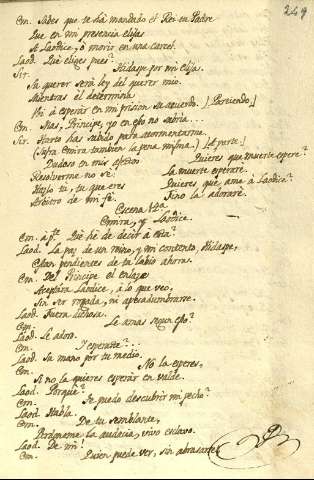 249
Em. Sabes que te há mandado el Rei su Padre
Que en mi presencia elijas
A Laodice, ó morir en una carcel.
Laod. Que eliges pues?
Sir. Hidaspe por mi elija.
Su querer será ley del querer mio.
Mientras él determina
Voi á esperar en mi prision su acuerdo. ) Partiendo.)
Em. Mas, Principe, yo en esso no sabria...
Sir. Harto has sabido para atormentarme.
(Sufra Emira tambien la pena misma.) (Aparte.)
Dudoso en mis afectos
Resolverme no sé: Quieres que muerte espere?
Hazlo tu, tu que eres La muerte esperaré.
Arbitro de mi fé. Quieres que ame á Laodice?
Sino la adoraré.
Escena
Emira, y Laodice.
Em. á pte. Qué hé de decir á esta?
Laod. La paz de un reino, y mi contento, Hidaspe,
Estan pendientes de tu labio ahora.
Em. Del Principe el enlaze
Aceptára Laodice, á lo que veo,
Sin ser rogada, ni apesadumbrarse.
Laod. Fuera dichosa.
Em. Le amas segun esso?
Laod. Le adoro.
Em. Y esperaste?...
Laod. Su mano por tu medio.
Em. No la esperes,
Si no la quieres esperar en valde.
Laod. Porquè?
Em. Te puedo descubrir mi pecho?
Laod. Habla.
Em. De tu semblante,
Perdoname la audacia, vivo esclavo.
Laod. De mi!
Em. Quien puede ver, sin abrasarse